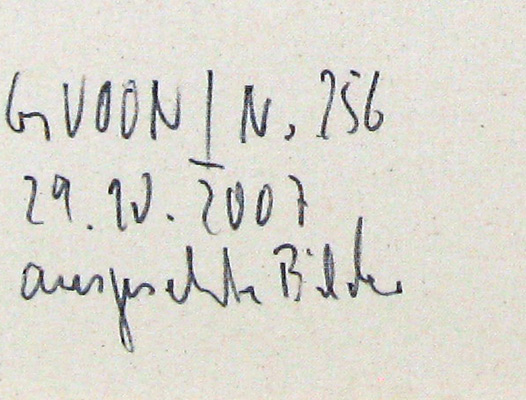 GVOON | N. 256
29.10.2007
ausgesetzte Bilder